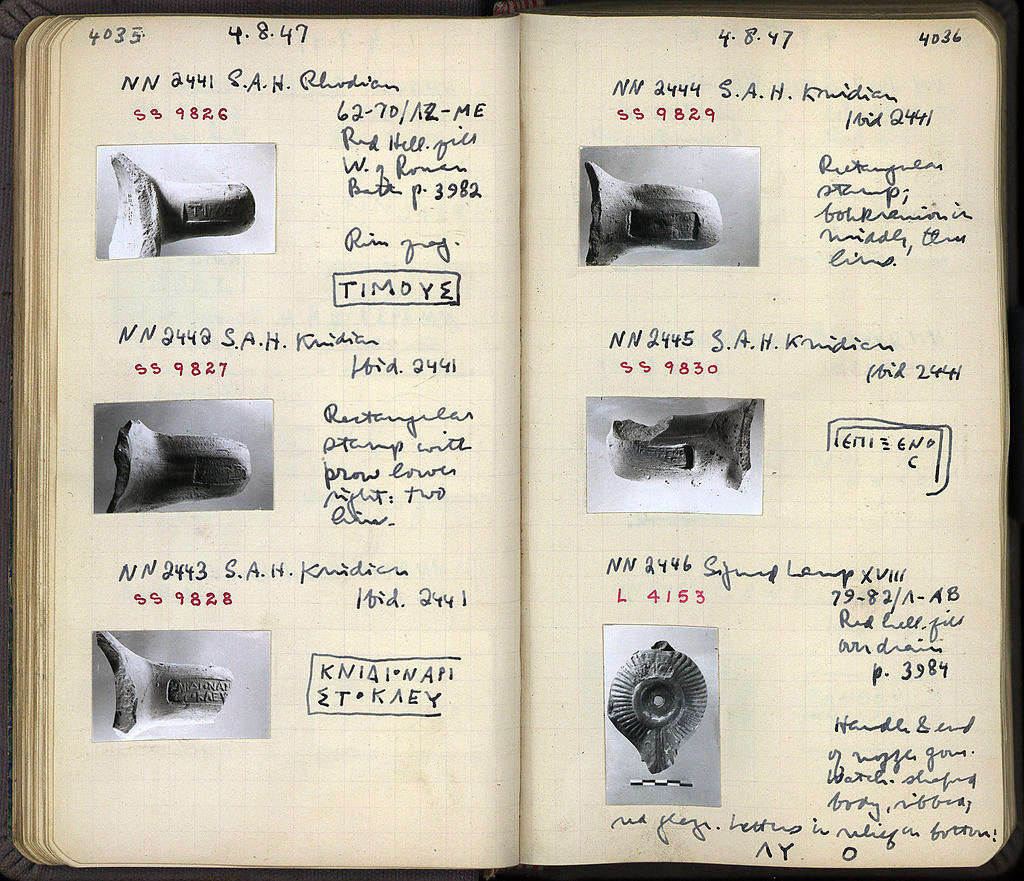 4035
4.8.47
NN 2441 S.A.H. Rhodian
SS 9826
62-70/ΛΖ-ΜΕ
Red Hell. fill
W. of Roman
Bath p. 3982
Rim frag.
ΤΙΜΟΥΣ
NN 2442 S.A.H. Knidian
SS 9827
Ibid. 2441
Rectangular
stamp with
prow lower
right: two
lines.
NN 2443 S.A.H. Knidian
SS 9828
Ibid. 2441
ΚΝΙΔΙ·ΝΑΡΙ
ΣΤ·ΚΛΕΥ
4.8.47
4036
NN 2444 S.A.H. Knidian
SS 9829
Ibid 2441
Rectangular
stamp;
boukranion in
middle, three
lines.
NN 2445 S.A.H. Knidian
SS 9830
Ibid 2441
ΙΕΠΙΞΕΝΟ
C
NN 2446 Signed Lamp XVIII
L 4153
79-82/Λ-ΛΒ
Red hell. fill
over drain
p. 3984
Handle & end
of nozzle gone.
Watch-shaped
body, ribbed;
red glaze. Letters in relief on bottom:
ΛΥ Ο